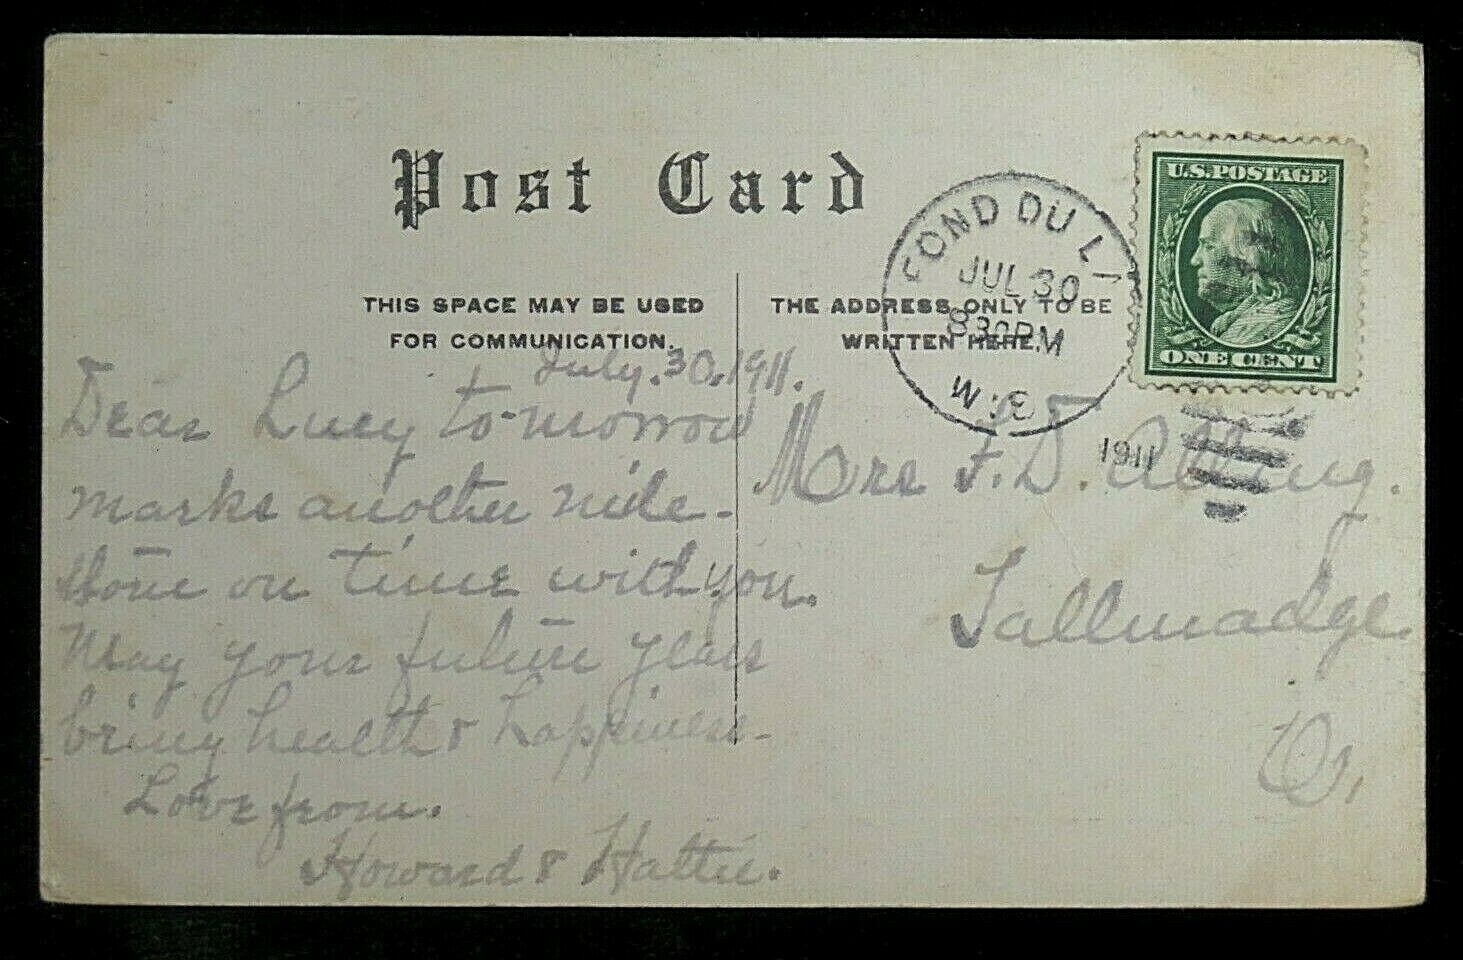 Post Card
THIS SPACE MAY BE USED
FOR COMMUNICATION.
THE ADDRESS ONLY TO BE
WRITTEN HERE.
FOND DU LA
JUL 30
830PM
WIS
1911
U.S. POSTAGE
ONE CENT
July. 30, 1911.
Dear Lucy to-morrow
marks another mile-
stone on time with you.
May your future years
bring health & happiness-
Love from.
Howard & Hattie.
Mrs F. D. Alling.
Tallmadge
O.